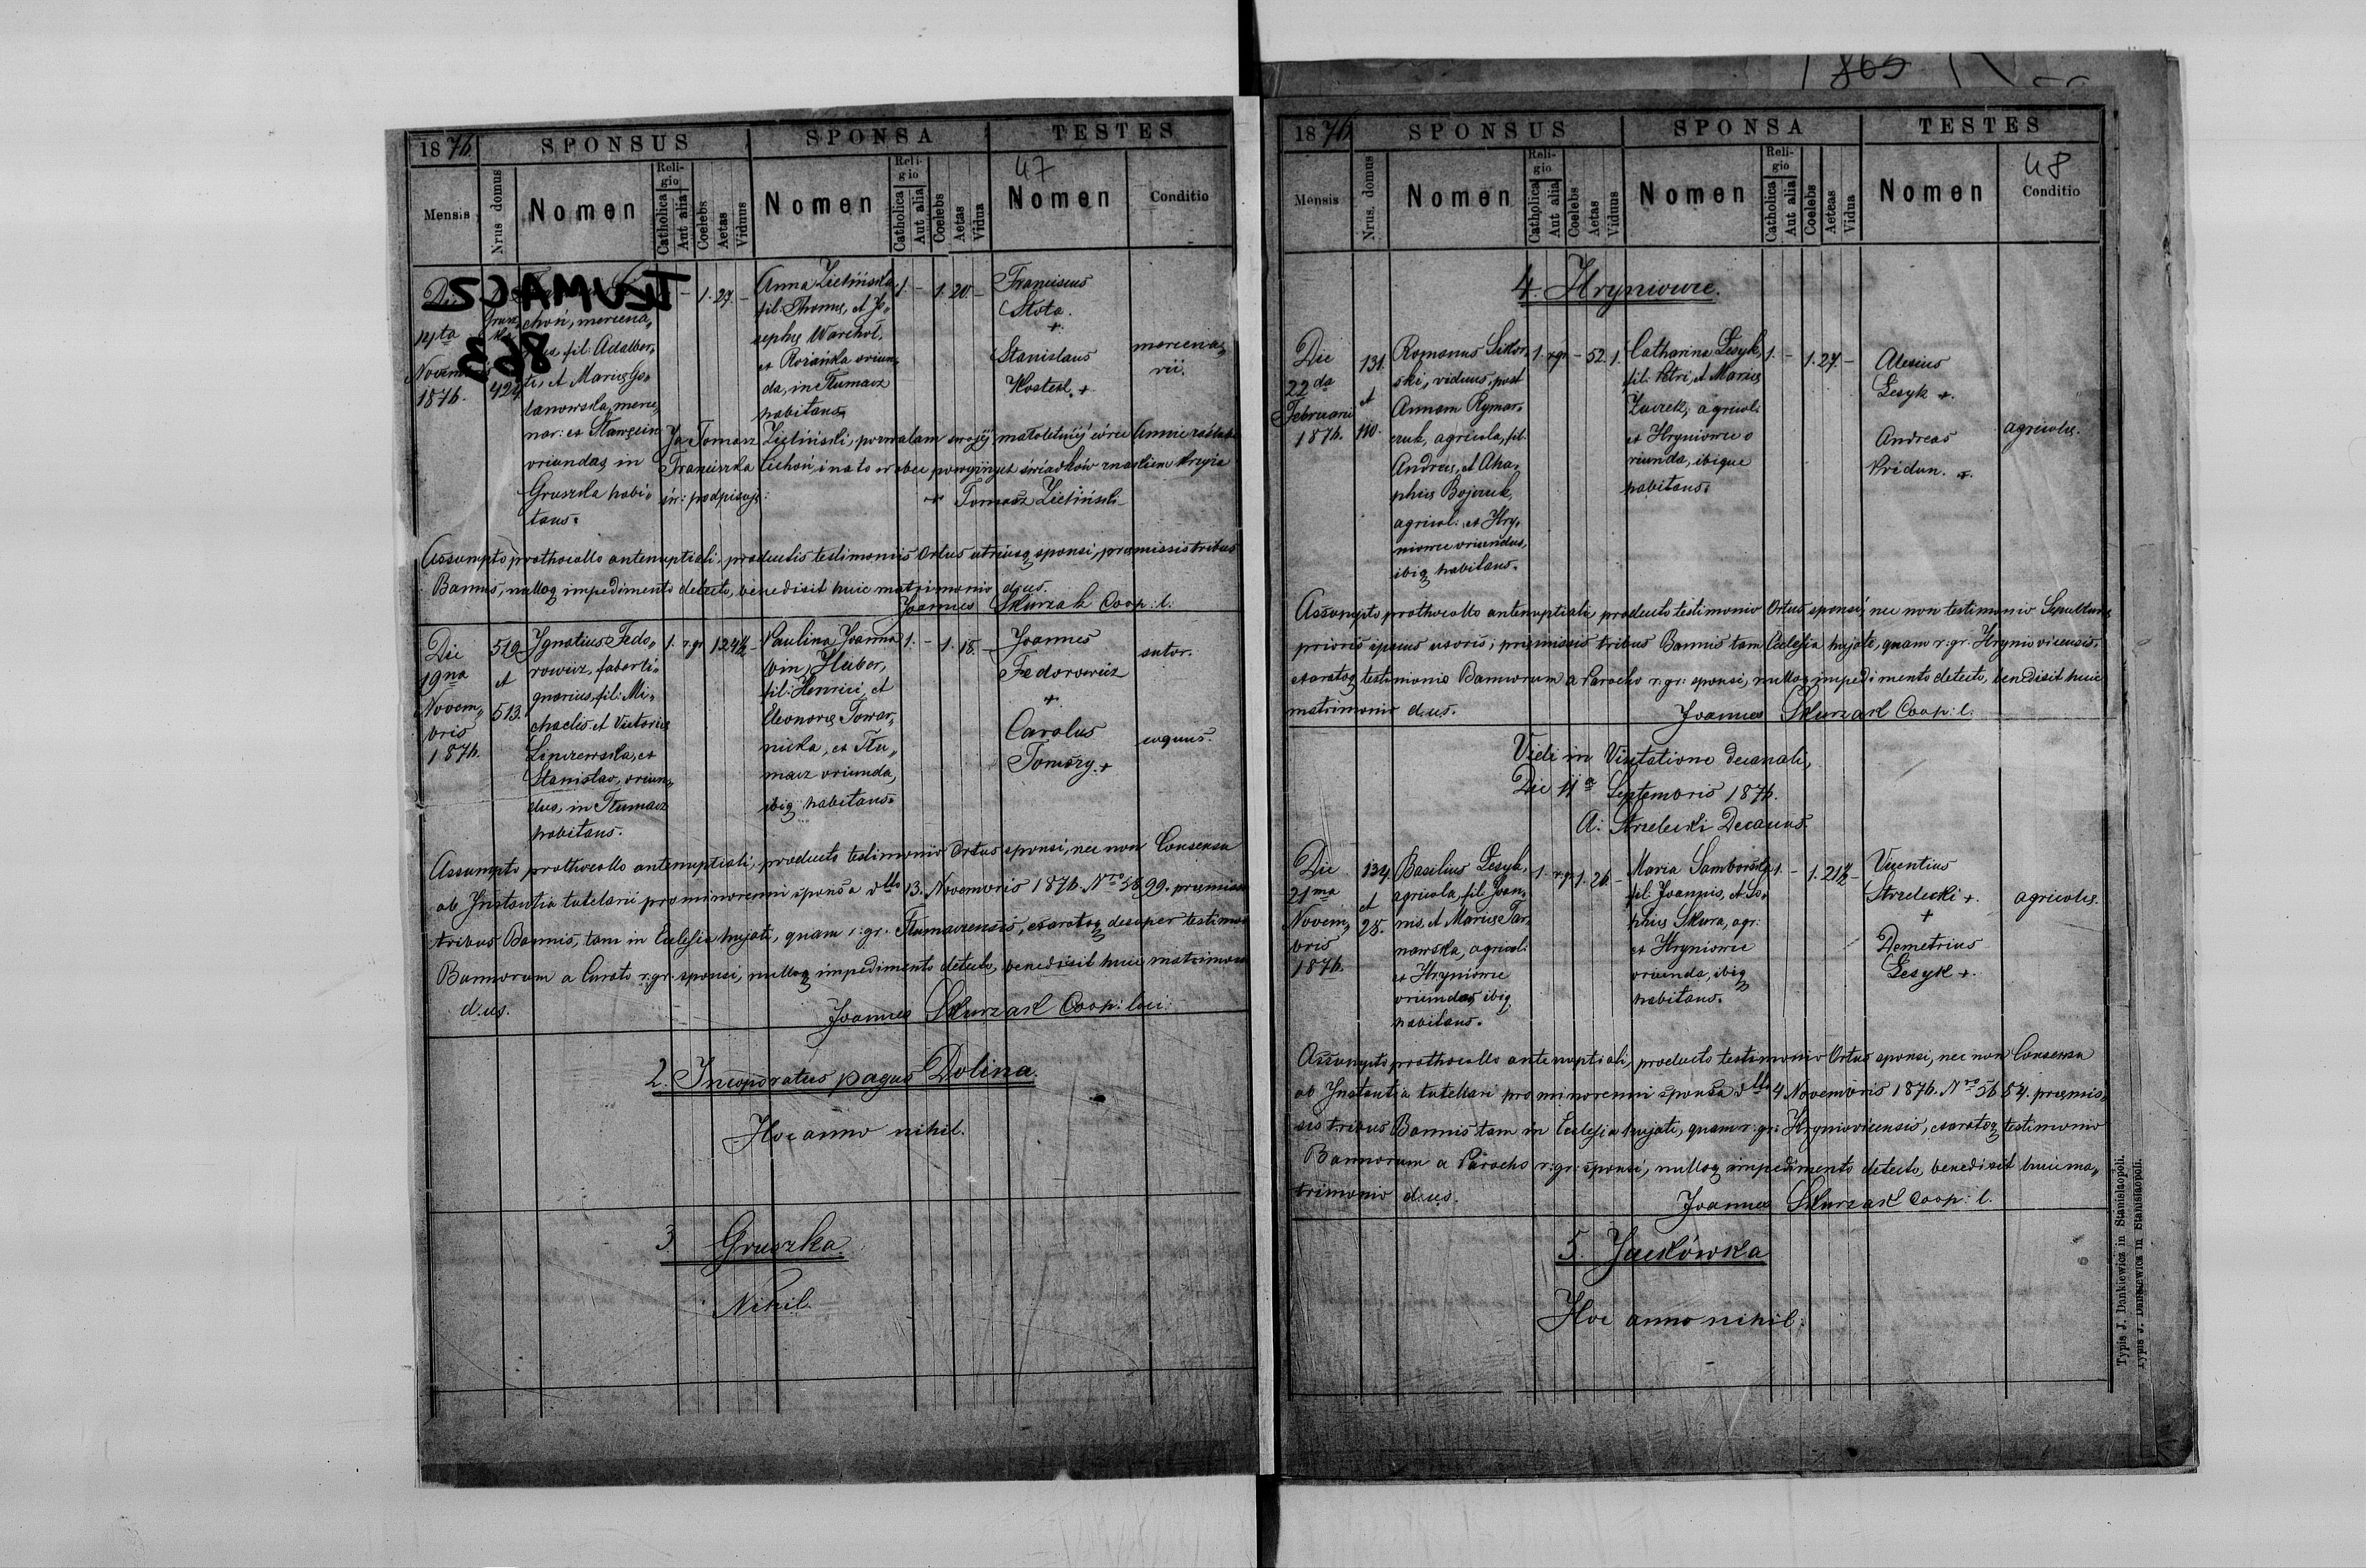 1876. SPONSUS SPONSA TESTES
47
Mensis Nrus domus Nomen Religio Catholica Aut alia Coelebs Aetas Viduus Nomen Religio Catholica Aut alia Coelebs Aetas Vidua Nomen Conditio
Die
14ta
1876.
424
choń, mercena„
fil: Adalber„
ti, et Mariæ Go„
lanowska, merce„
nar: ex
oriundus, in
Gruszka habi„
tans.
- 1. 27. -
Anna Zielińska
fil: Thomæ, et Jo„
sephæ Warchoł,
ex Rożańka oriun„
da, in Tłumacz
habitans.
1. - 1. 20. -
Franciscus
Słota.
+
Stanislaus
+
mercena„
rii.
Ja Tomasz Zieliński, pozwalam swojéj małoletniéj córce Annie zaślubić
Franciszka Cichoń, i na to w obec powyższych świadków znakiem krzyża
św: podpisuję:
+ Tomasz Zieliński
Assumpto prothocollo antenuptiali, productis testimoniis Ortus utriusq sponsi, præmissis tribus
Bannis, nulloq impedimento detecto, benedixit huic matrimonio d.us.
Joannes Skurzak Coop: l:
Die
19na
Novem„
bris
1876.
519
et
513.
Ignatius Fedo„
rowicz, faber li„
gnarius, fil: Mi„
chaelis et Victoriæ
ex
Stanislav. oriun„
dus, in Tłumacz
habitans.
1. r.gr. 1. 24½ -
Paulina Joanna
bin, Huber,
fil: Henrici, et
Eleonoræ Towar„
nicka, ex Tłu„
macz oriunda,
ibiq habitans.
1. - 1. 18. -
Joannes
Fedorowicz
+
Carolus
Tomszy. +
sutor.
coquus.
Assumpto prothocollo antenuptiali, producto testimonio Ortus sponsi, nec non Consensu
ab Instantia tutelarii pro minorenni sponsa dtto 13. Novembris 1876. Nro 5899. præmissis
tribus Bannis, tam in Ecclesia hujate, quam r: gr. Tłumacensis, exaratoq desuper testimonio
Bannorum a Curato r.gr. sponsi, nulloq impedimento detecto, benedixit huic matrimonio
d.us.
Joannes Skurzak Coop: loci.
2. Incorporatus pagus Dolina.
Hoc anno nihil.
3. Gruszka.
Nihil.
1876. SPONSUS SPONSA TESTES
48
Mensis Nrus. domus Nomen Religio Catholica Aut alia Coelebs Aetas Viduus Nomen Religio Catholica Aut alia Coelebs Aeteas Vidua Nomen Conditio
4. Hryniowce.
Die
22da
Februarii
1876.
131.
et
110.
Romanus Sikor„
ski, viduus, post
Annam Rymar„
czuk, agricola, fil.
Andreæ, et Aha„
phiæ Bojczuk,
agricol: ex Hry„
niowce oriundus,
ibiq habitans.
1. r.gr. - 52. 1.
Catharina Lesyk,
fil: Petri, et Mariæ
agricol:
ex Hryniowce o
riunda, ibique
habitans.
1. - 1. 27. -
Alexius
Lesyk +.
Andreas
Kridun. +.
agricolæ.
Assumpto prothocollo antenuptiali, producto testimonio Ortus sponsi, nec non testimonio Sepulturæ
prioris ipsius uxoris; præmissis tribus Bannis tam Ecclesia hujate, quam r: gr. Hryniovicensis,
exaratoq testimonio Bannorum a Parocho r: gr: sponsi, nulloq impedimento detecto, benedixit huic
matrimonio d.us.
Joannes Skurzak Coop: l.
Vidi in Visitatione decanali,
Die 11a Septembris 1876.
A: Strzelecki Decanus.
Die
21ma
Novem„
bris
1876.
134
et
28.
Basilius Lesyk,
agricola, fil: Joan„
nis, et Mariæ Tar„
nawska, agricol:
ex Hryniowce
oriundus, ibiq
habitans.
1. r.gr. 1. 26. -
Maria Samborska,
fil: Joannis, et So„
phiæ Skura, agr:
ex Hryniowce
oriunda, ibiq
habitans.
1. - 1. 21½ -
Vicentius
Strzelecki +.
+
Demetrius
Lesyk +.
agricolæ.
Assumpto prothocollo antenuptiali, producto testimonio Ortus sponsi, nec non Consensu
ab Instantia tutellari pro minorenni sponsa dtto 4 Novembris 1876. Nro 5654. præmis„
sis tribus Bannis tam in Ecclesia hujate, quam r: gr: Hryniovicensis, exaratoq testimonio
Bannorum a Parocho r: gr: sponsi, nulloq impedimento detecto, benedixit huic ma„
trimonio d.us.
Joannes Skurzak Coop: l.
5. Jackówka
Hoc anno nihil.
Typis J. Dankiewicz in Stanislaopoli.
Typis J. Dankiewicz in Stanislaopoli.